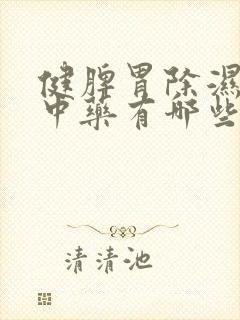 健脾胃除濕
中藥有哪些
清清池